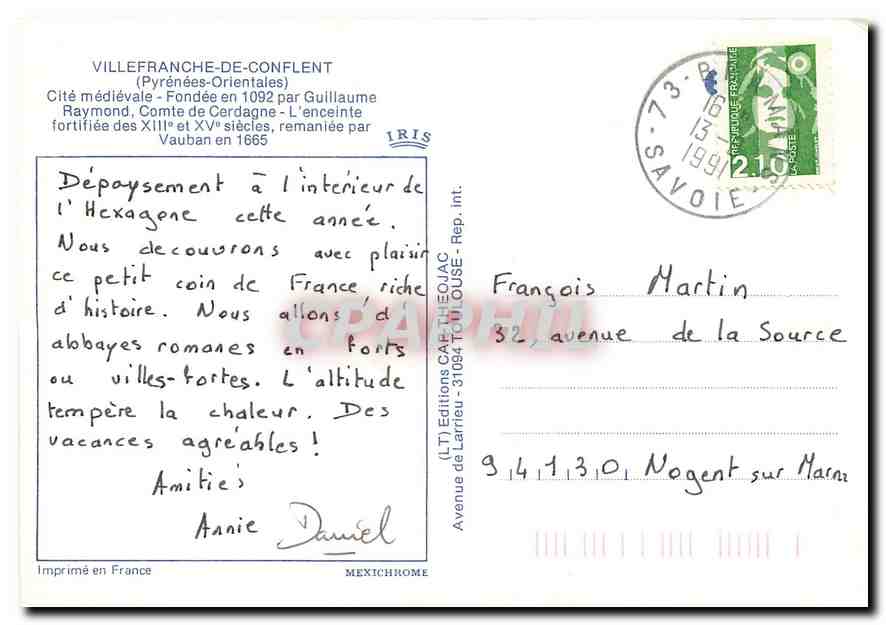 VILLEFRANCHE-DE-CONFLENT
(Pyrénées-Orientales)
Cité médiévale - Fondée en 1092 par Guillaume
Raymond, Comte de Cerdagne - L'enceinte
fortifiée des XIIIe et XVe siècles, remaniée par
Vauban en 1665
IRIS
Dépaysement à l'intérieur de
l'Hexagone cette année.
Nous decouvrons avec plaisir
ce petit coin de France riche
d'histoire. Nous allons d'
abbayes romanes en forts
ou villes-fortes. L'altitude
tempère la chaleur. Des
vacances agréables!
Amitiés
Annie Daniel
Imprimé en France
MEXICHROME
(LT) Editions CAP-THEOJAC
Avenue de Larrieu - 31094 TOULOUSE - Rep. int.
CPAPHIL
73
16
13
1991
SAVOIE
REPUBLIQUE FRANÇAISE
2.10
LA POSTE
François Martin
32, avenue de la Source
94130 Nogent sur Marne